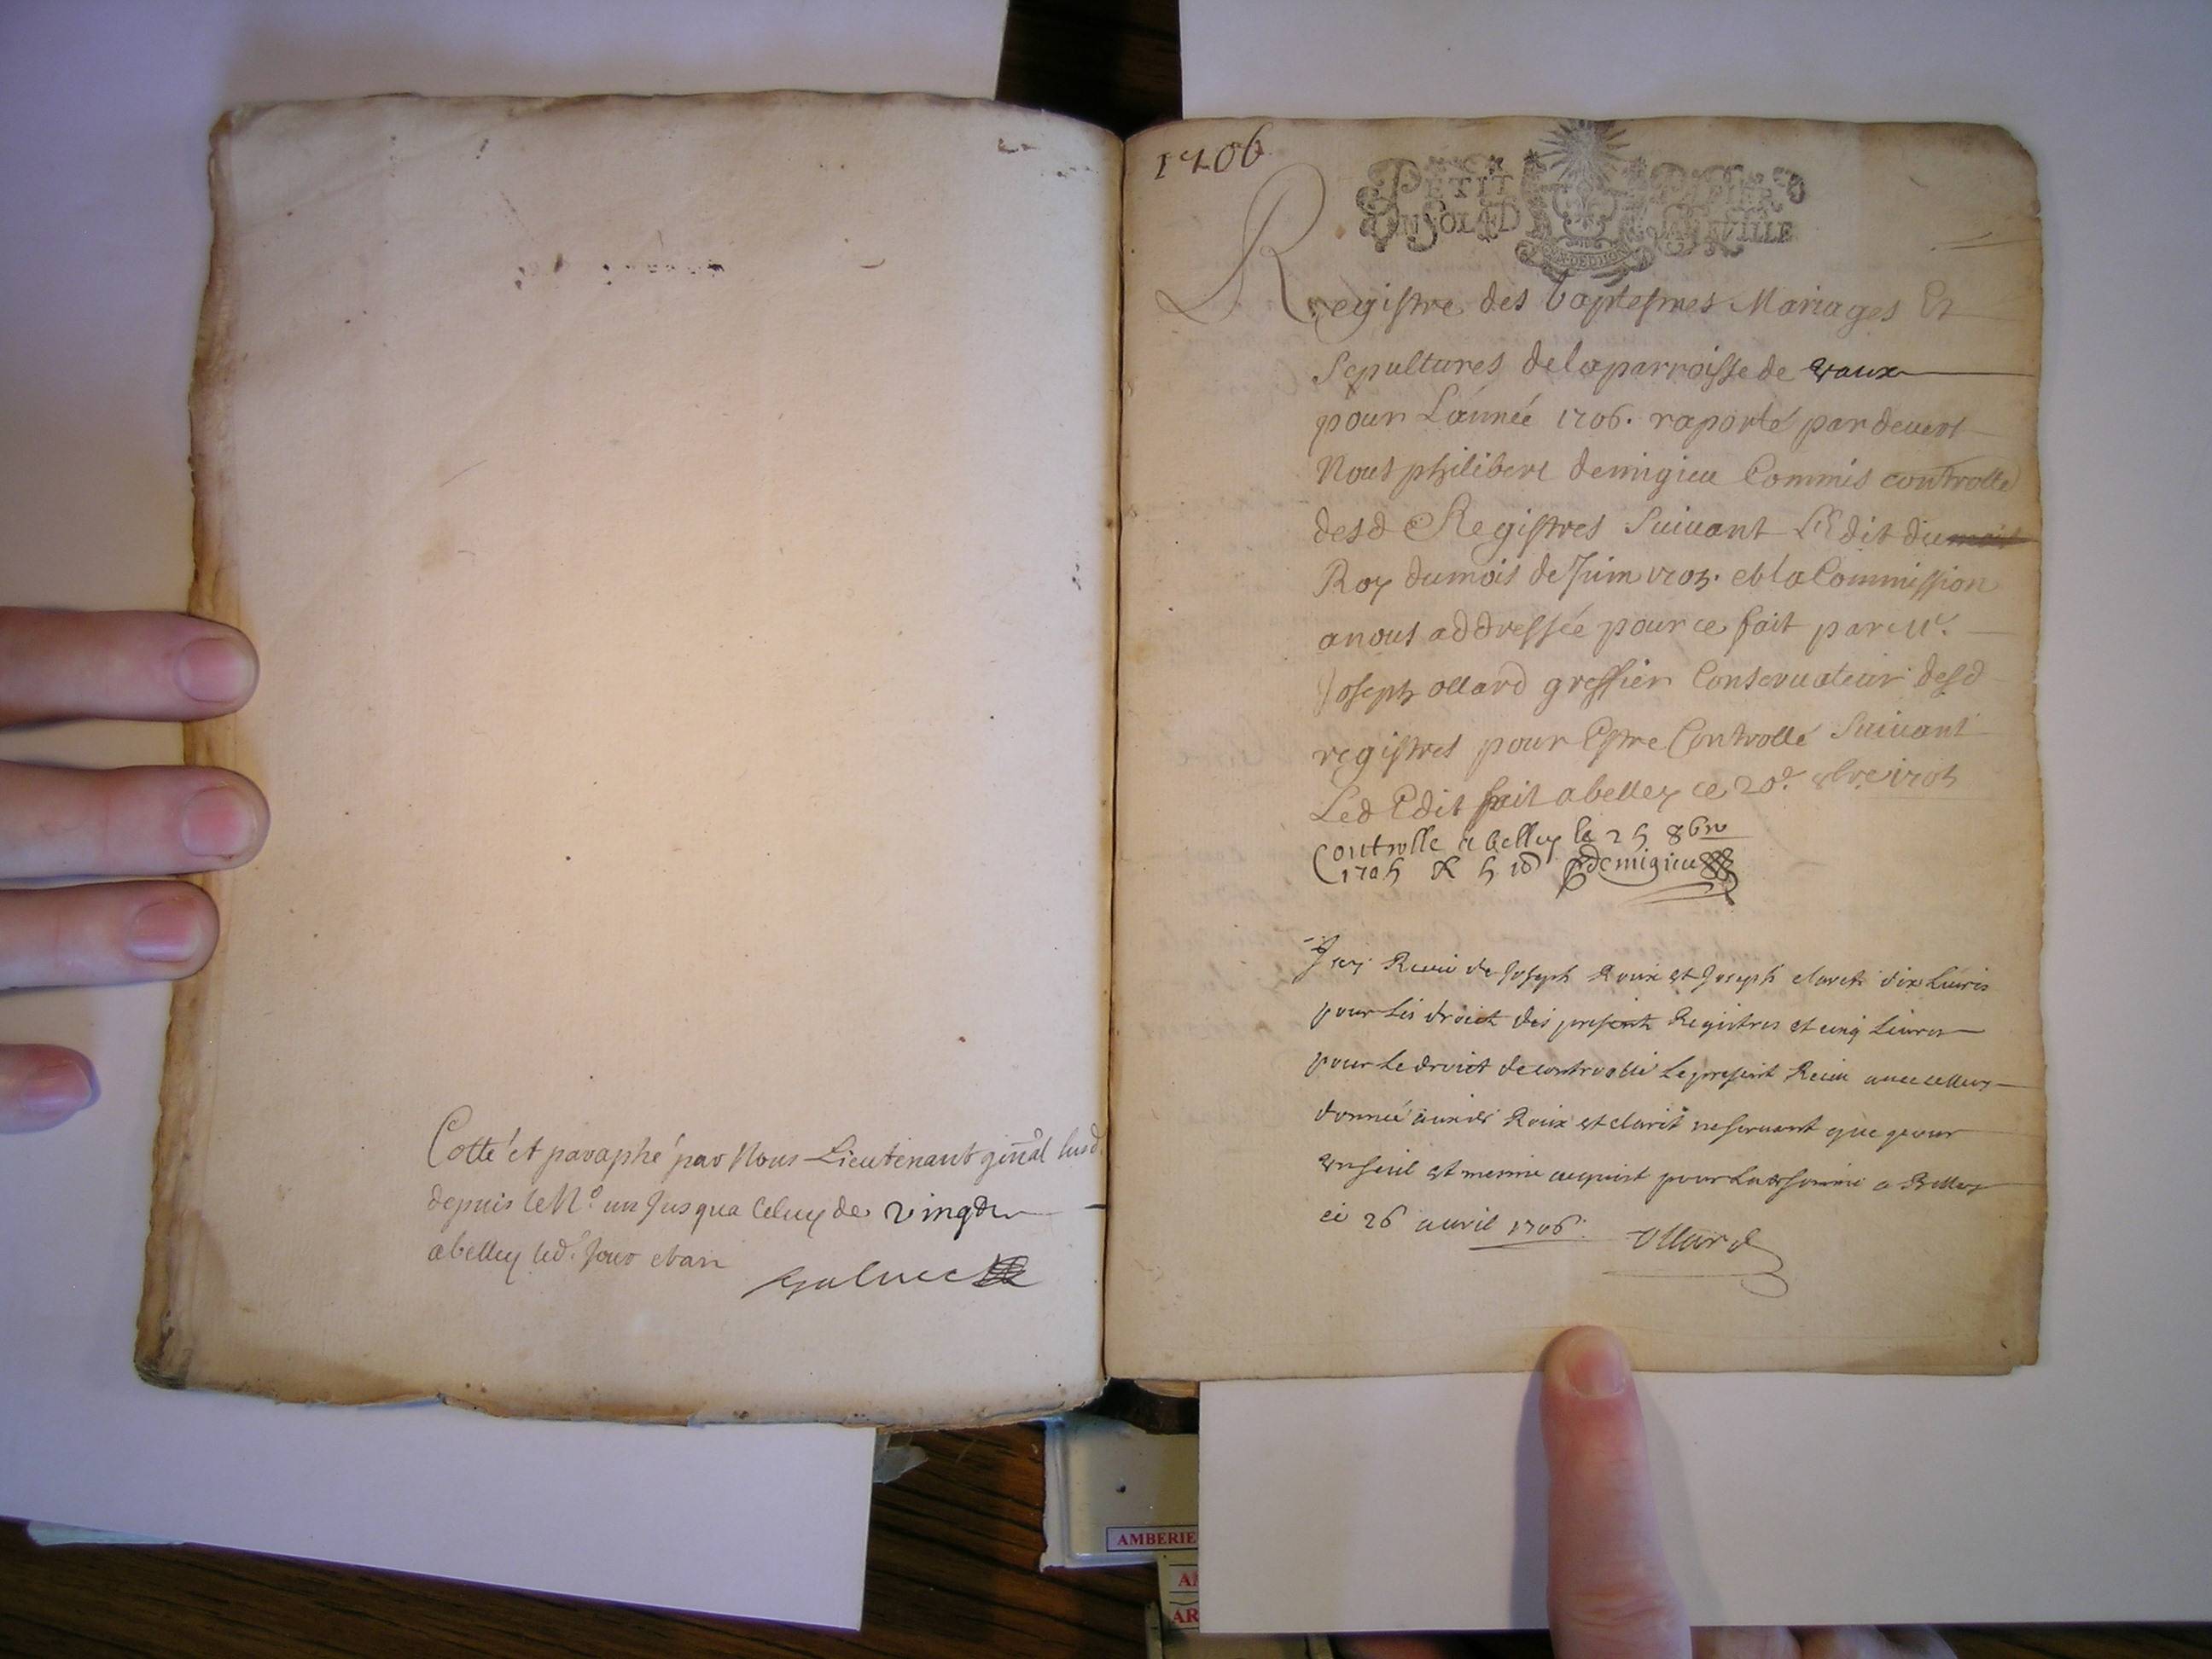 Cotté et paraphé par Nous Lieutenant gñal susd.
depuis le N.o un jusqua Celuy de vingt
abelley led. jour et an
1706
PETIT PAPIER
UN SOL 4 D LA FEUILLE
Registre des baptesmes Mariages Et
Sepultures de la parroisse de vaux
pour L'année 1706. raporté pardeuant
Nous philibert demigieu Commis controlle
desd Registres Suiuant L'Edit du
Roy du mois de Juin 1705. et la Commission
a nous addressée pour ce fait par Mr.
Joseph ollard greffier Conseruateur desd
registres pour Estre Controllé Suiuant
Led Edit fait a belley ce 20e 8bre 1705
Controlle a belley le 25 8bre
1705 R 5 s Demigieu
J'ay Receu de Joseph Roux et Joseph claret dix Liures
pour les droict des present Registres et cinq Liures
pour le droict de controolle Le present Receu auec celluy
donneé auxds Roux et claret ne seruant que pour
vn seul et mesme acquist pour lad somme a Belley
ce 26 auril 1706. Ollard
AMBERIE
AR